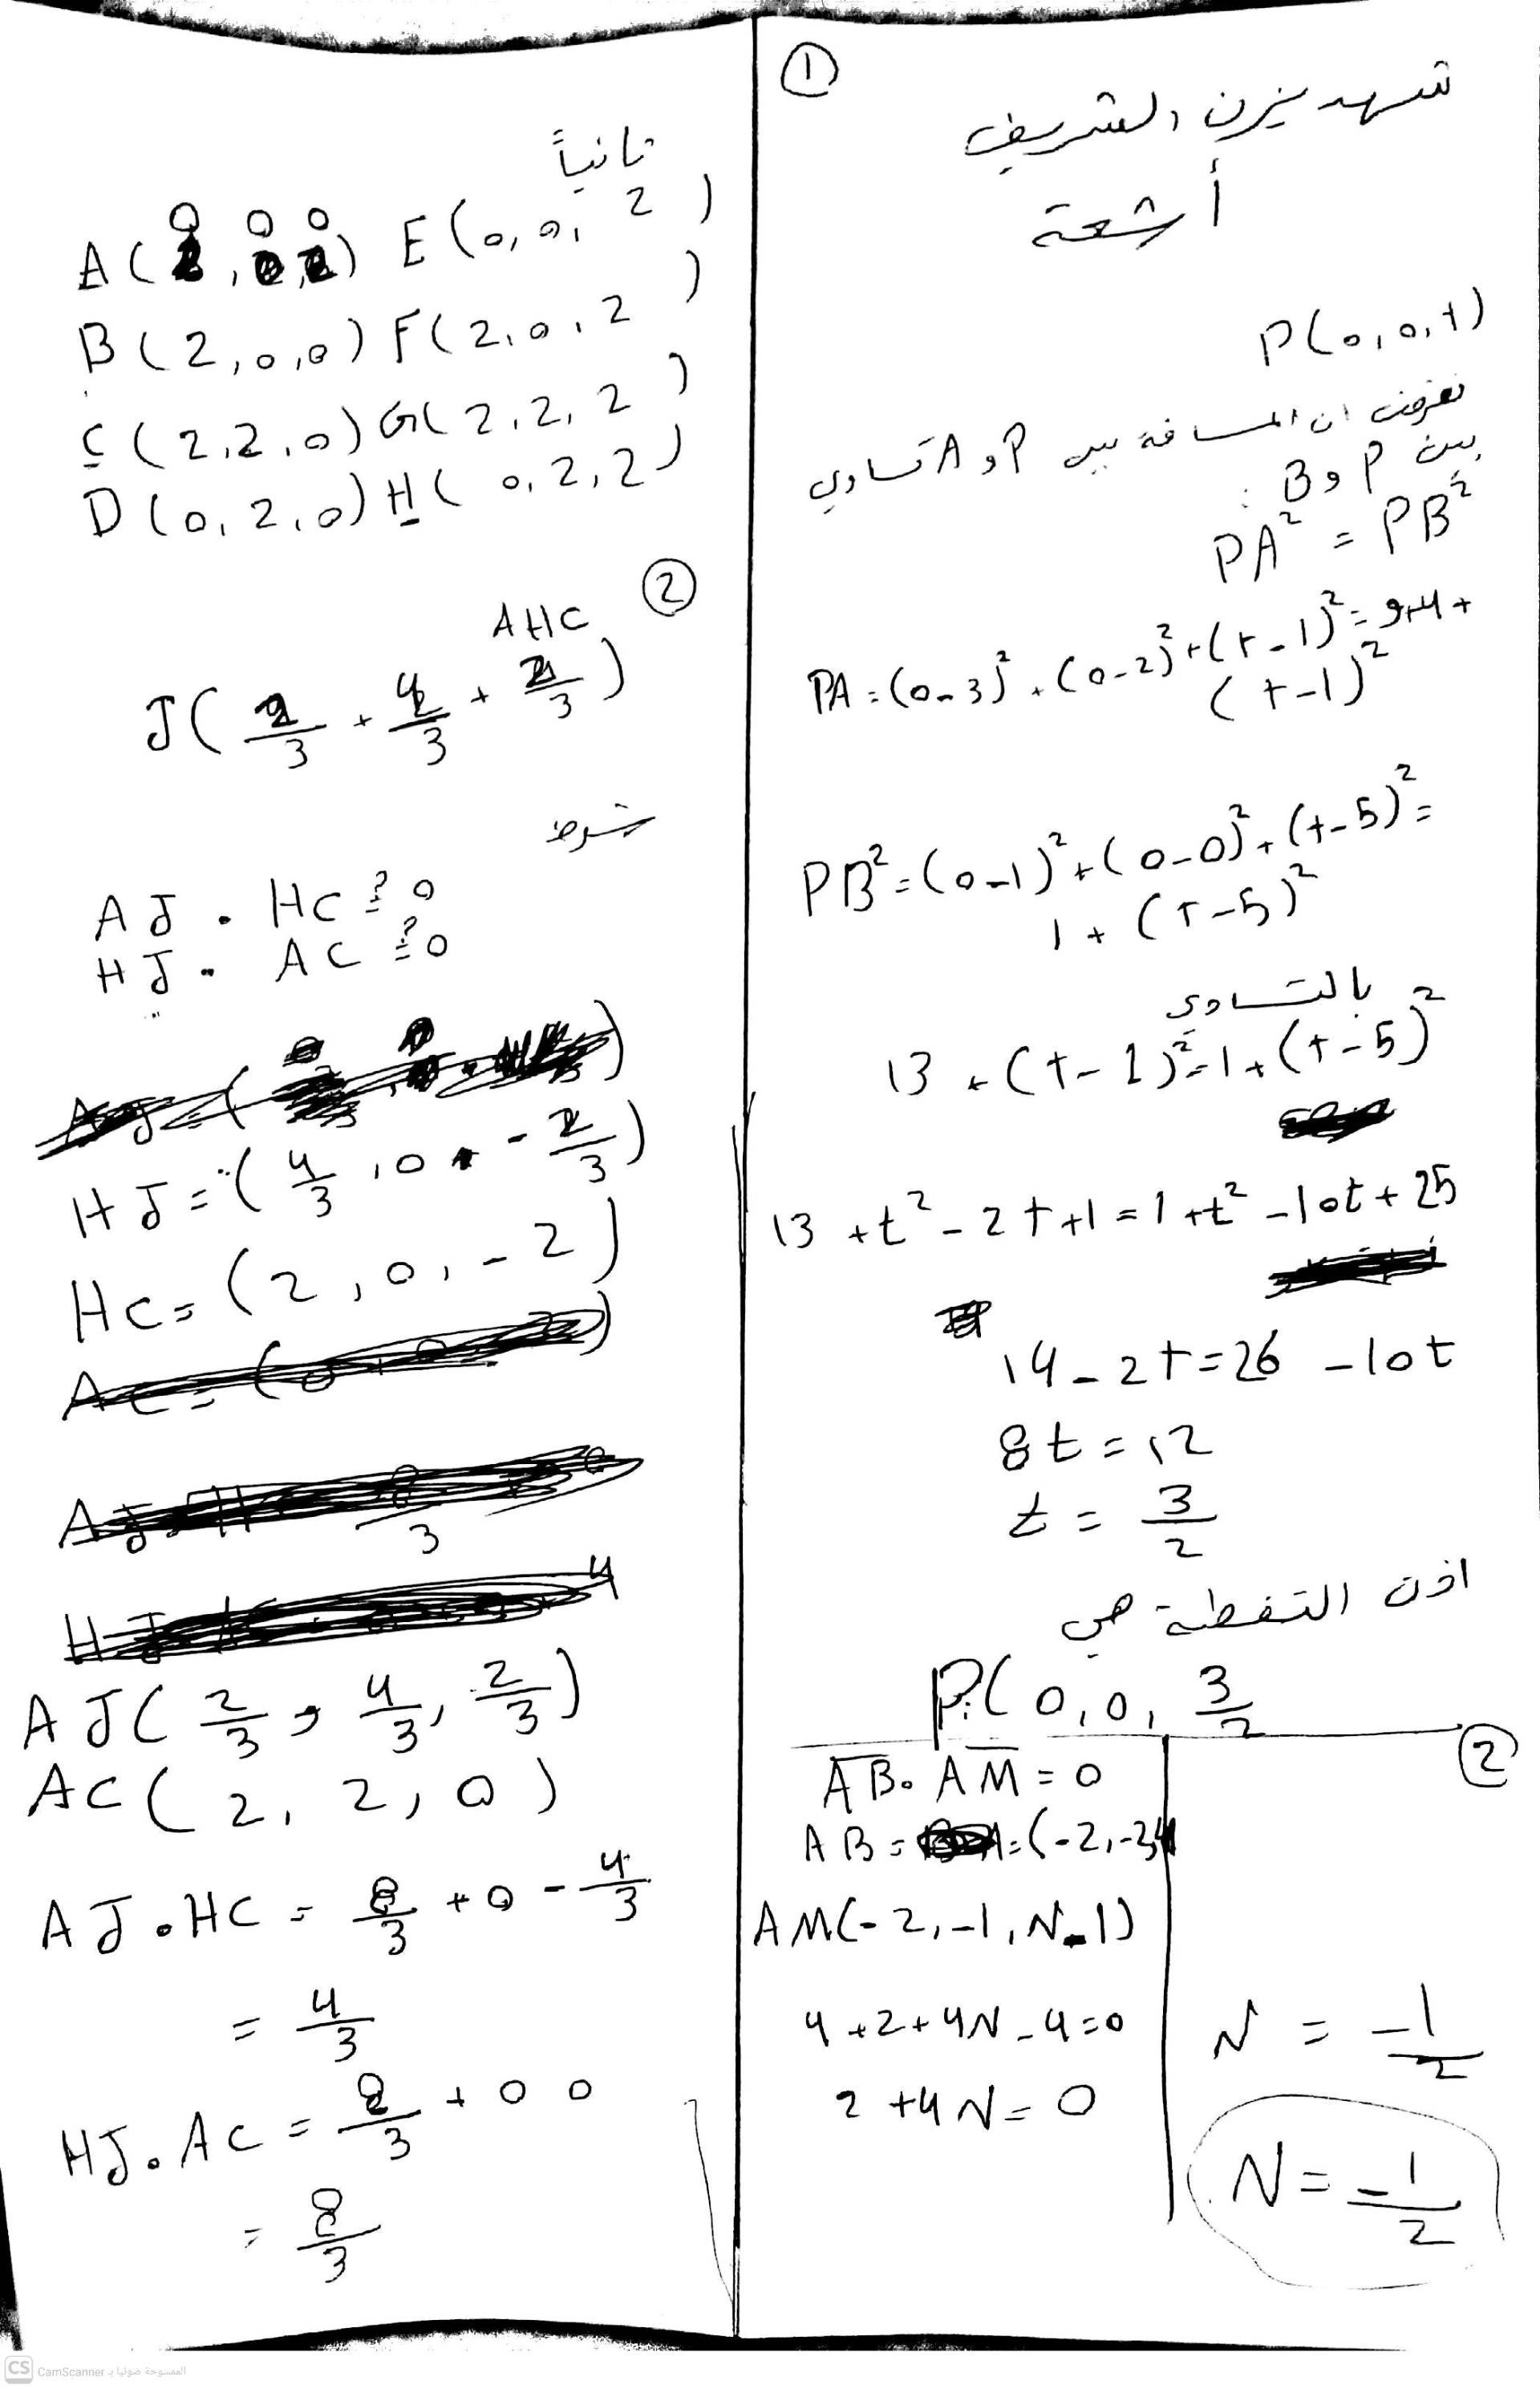 ①
شهد يزن الشريف
أشعة
P(0,0,t)
نفرض ان المسافة بين P و A تساوي
بين P و B :
PA² = PB²
PA = (0-3)² + (0-2)² + (t-1)² = 9+4+
(t-1)²
PB² = (0-1)² + (0-0)² + (t-5)² =
1 + (t-5)²
بالتساوي
13 + (t-1)² = 1 + (t-5)²
13 + t² - 2t + 1 = 1 + t² - 10t + 25
14 - 2t = 26 - 10t
8t = 12
t = 3/2
اذن النقطة هي
P(0,0, 3/2
②
AB . AM = 0
AB = (-2,-2,4
AM(-2,-1,N-1)
4+2+4N-4=0
2+4N=0
N = -1/2
N = -1/2
ثانياً
A(0,0,0) E(0,0,2)
B(2,0,0) F(2,0,2)
C(2,2,0) G(2,2,2)
D(0,2,0) H(0,2,2)
②
AHC
J(2/3 + 4/3 + 2/3)
AJ . HC ?= 0
HJ . AC ?= 0
HJ = (4/3, 0, -2/3)
HC = (2,0,-2)
AJ(2/3, 4/3, 2/3)
AC(2,2,0)
AJ.HC = 8/3 + 0 - 4/3
= 4/3
HJ.AC = 8/3 + 0 0
= 8/3
CS CamScanner الممسوحة ضوئيا بـ